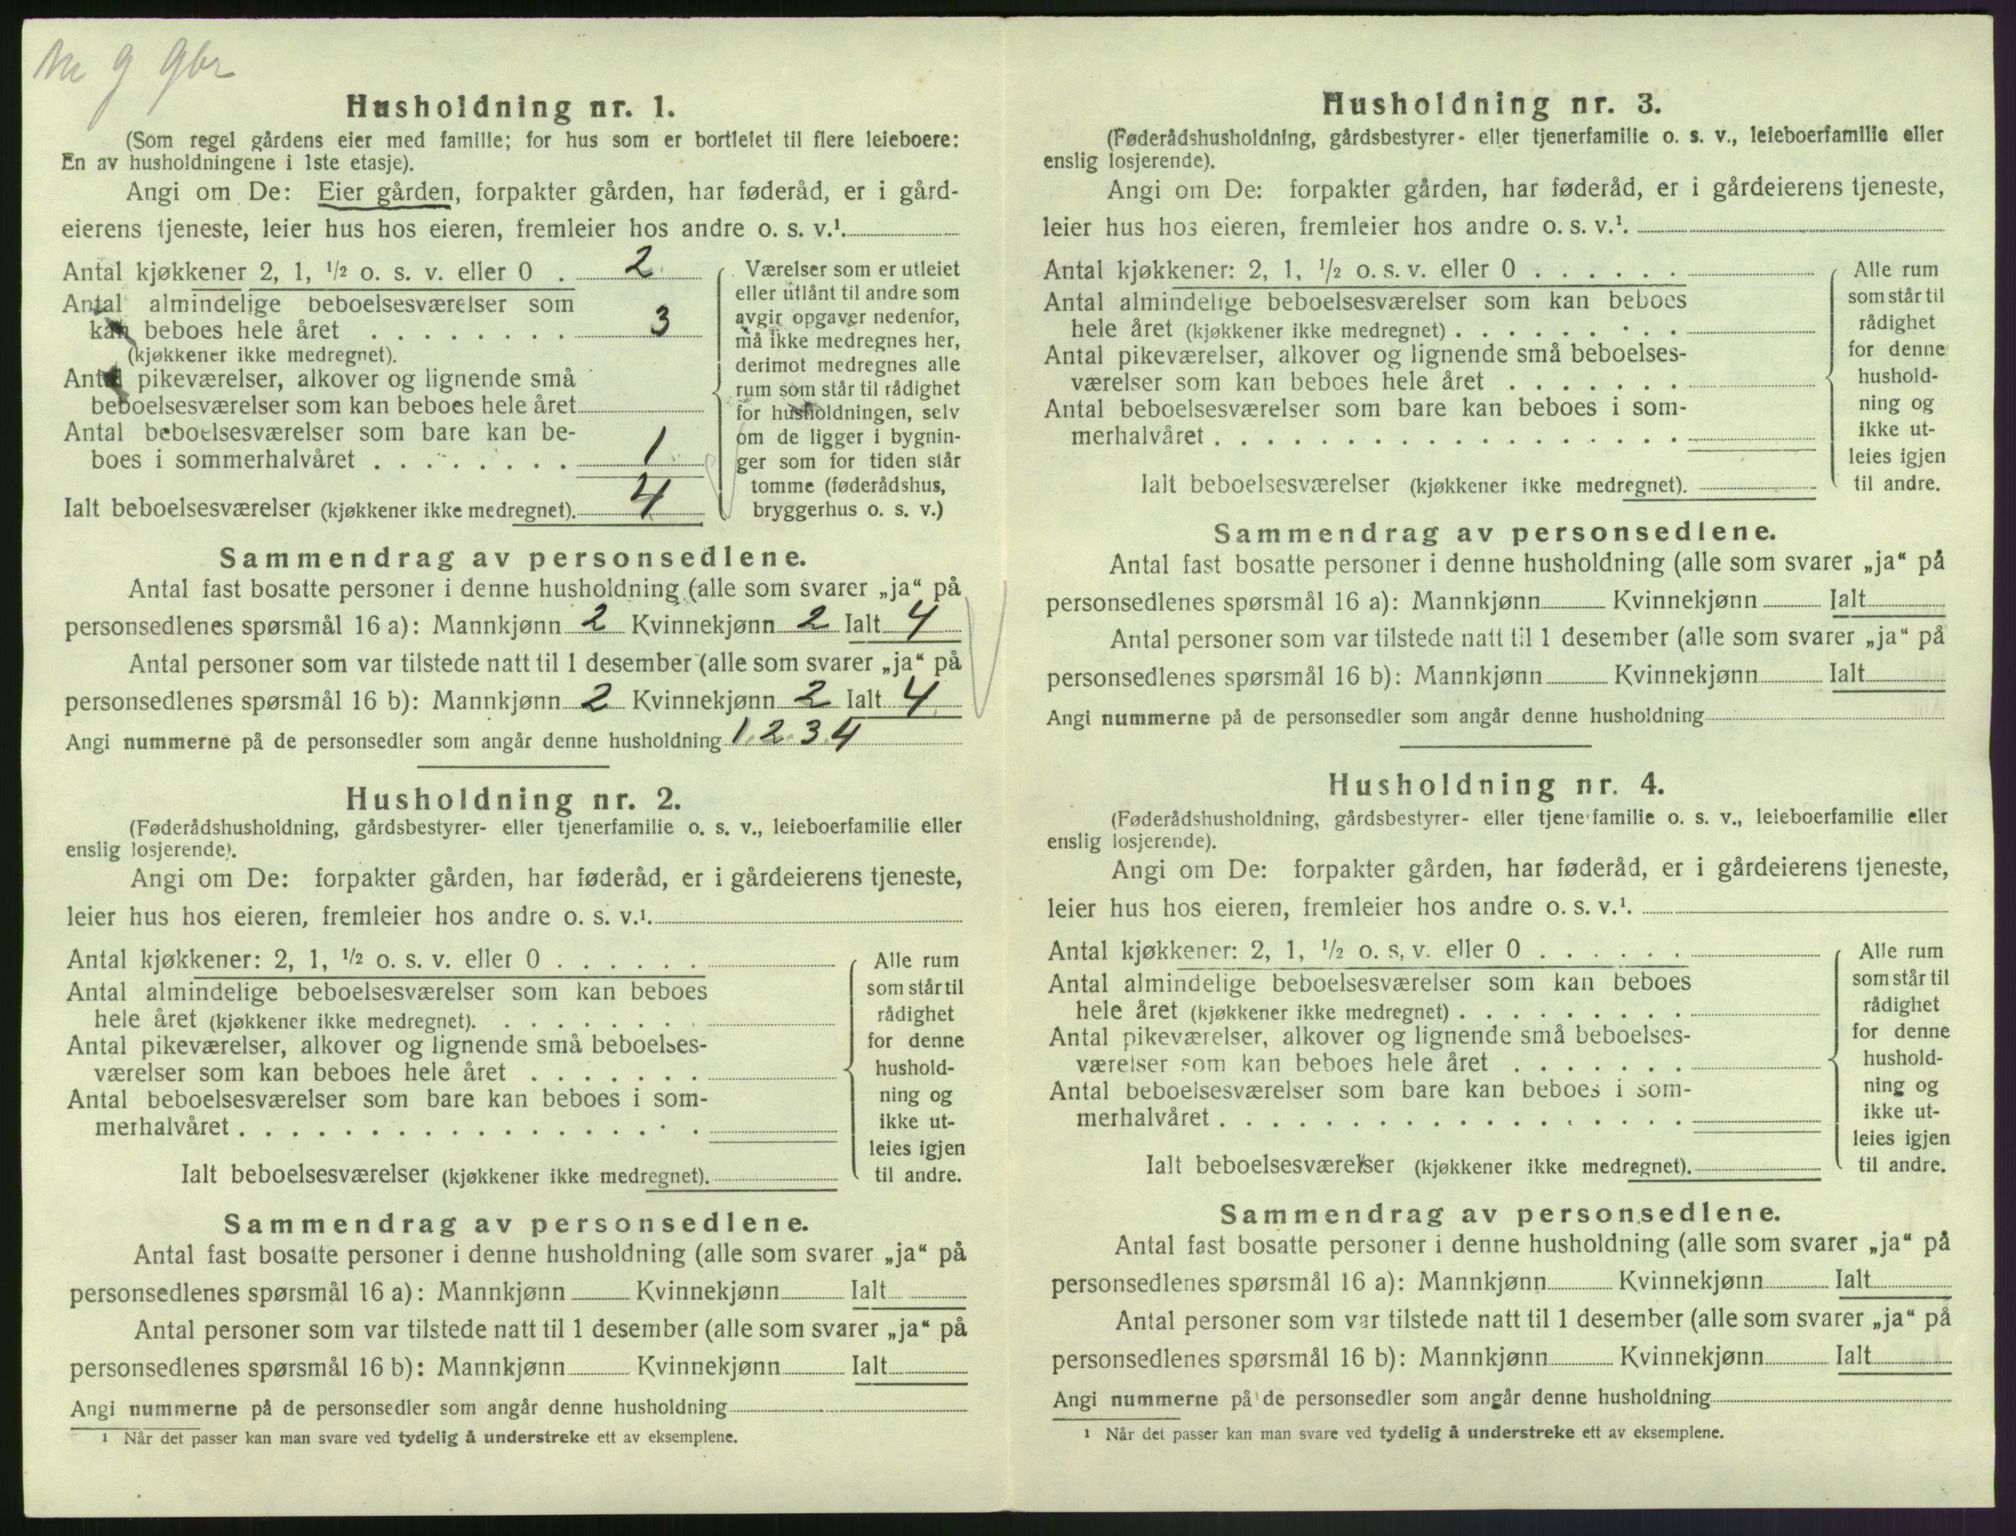 Husholdning nr. 1.
(Som regel gårdens eier med familie; for hus som er bortleiet til flere leieboere:
En av husholdningene i 1ste etasje).
Angi om De: Eier gården, forpakter gården, har føderåd, er i gård-
eierens tjeneste, leier hus hos eieren, fremleier hos andre o. s. v.¹.
Antal kjøkkener 2, 1, ½ o. s. v. eller 0 . 2
Antal almindelige beboelsesværelser som
kan beboes hele året . . . . . . . . 3
(kjøkkener ikke medregnet).
Antal pikeværelser, alkover og lignende små
beboelsesværelser som kan beboes hele året
Antal beboelsesværelser som bare kan be-
boes i sommerhalvåret . . . . . . . . 1
Ialt beboelsesværelser (kjøkkener ikke medregnet). 4
Værelser som er utleiet
eller utlånt til andre som
avgir opgaver nedenfor,
må ikke medregnes her,
derimot medregnes alle
rum som står til rådighet
for husholdningen, selv
om de ligger i bygnin-
ger som for tiden står
tomme (føderådshus,
bryggerhus o. s. v.)
Sammendrag av personsedlene.
Antal fast bosatte personer i denne husholdning (alle som svarer „ja“ på
personsedlenes spørsmål 16 a): Mannkjønn 2 Kvinnekjønn 2 Ialt 4
Antal personer som var tilstede natt til 1 desember (alle som svarer „ja“ på
personsedlenes spørsmål 16 b): Mannkjønn 2 Kvinnekjønn 2 Ialt 4
Angi nummerne på de personsedler som angår denne husholdning 1. 2. 3. 4
Husholdning nr. 2.
(Føderådshusholdning, gårdsbestyrer- eller tjenerfamilie o. s. v., leieboerfamilie eller
enslig losjerende).
Angi om De: forpakter gården, har føderåd, er i gårdeierens tjeneste,
leier hus hos eieren, fremleier hos andre o. s. v.¹.
Antal kjøkkener: 2, 1, ½ o. s. v. eller 0 . . . . . .
Antal almindelige beboelsesværelser som kan beboes
hele året (kjøkkener ikke medregnet). . . . . . . . .
Antal pikeværelser, alkover og lignende små beboelses-
værelser som kan beboes hele året . . . . . . .
Antal beboelsesværelser som bare kan beboes i som-
merhalvåret . . . . . . . . . . . . . . . . . .
Ialt beboelsesværelser (kjøkkener ikke medregnet).
Alle rum
som står til
rådighet
for denne
hushold-
ning og
ikke ut-
leies igjen
til andre.
Sammendrag av personsedlene.
Antal fast bosatte personer i denne husholdning (alle som svarer „ja“ på
personsedlenes spørsmål 16 a): Mannkjønn Kvinnekjønn Ialt
Antal personer som var tilstede natt til 1 desember (alle som svarer „ja“ på
personsedlenes spørsmål 16 b): Mannkjønn Kvinnekjønn Ialt
Angi nummerne på de personsedler som angår denne husholdning
¹ Når det passer kan man svare ved tydelig å understreke ett av eksemplene.
Husholdning nr. 3.
(Føderådshusholdning, gårdsbestyrer- eller tjenerfamilie o. s. v., leieboerfamilie eller
enslig losjerende).
Angi om De: forpakter gården, har føderåd, er i gårdeierens tjeneste,
leier hus hos eieren, fremleier hos andre o. s. v.¹.
Antal kjøkkener: 2, 1, ½ o. s. v. eller 0 . . . . . .
Antal almindelige beboelsesværelser som kan beboes
hele året (kjøkkener ikke medregnet) . . . . . . . . .
Antal pikeværelser, alkover og lignende små beboelses-
værelser som kan beboes hele året . . . . . . .
Antal beboelsesværelser som bare kan beboes i som-
merhalvåret . . . . . . . . . . . . . . . . . .
Ialt beboelsesværelser (kjøkkener ikke medregnet).
Alle rum
som står til
rådighet
for denne
hushold-
ning og
ikke ut-
leies igjen
til andre.
Sammendrag av personsedlene.
Antal fast bosatte personer i denne husholdning (alle som svarer „ja“ på
personsedlenes spørsmål 16 a): Mannkjønn Kvinnekjønn Ialt
Antal personer som var tilstede natt til 1 desember (alle som svarer „ja“ på
personsedlenes spørsmål 16 b): Mannkjønn Kvinnekjønn Ialt
Angi nummerne på de personsedler som angår denne husholdning
Husholdning nr. 4.
(Føderådshusholdning, gårdsbestyrer- eller tjenefamilie o. s. v., leieboerfamilie eller
enslig losjerende).
Angi om De: forpakter gården, har føderåd, er i gårdeierens tjeneste,
leier hus hos eieren, fremleier hos andre o. s. v.¹.
Antal kjøkkener: 2, 1, ½ o. s. v. eller 0 . . . . . .
Antal almindelige beboelsesværelser som kan beboes
hele året (kjøkkener ikke medregnet) . . . . . . . . .
Antal pikeværelser, alkover og lignende små beboelses-
værelser som kan beboes hele året . . . . . . .
Antal beboelsesværelser som bare kan beboes i som-
merhalvåret . . . . . . . . . . . . . . . . . .
Ialt beboelsesværelser (kjøkkener ikke medregnet).
Alle rum
som står til
rådighet
for denne
hushold-
ning og
ikke ut-
leies igjen
til andre.
Sammendrag av personsedlene.
Antal fast bosatte personer i denne husholdning (alle som svarer „ja“ på
personsedlenes spørsmål 16 a): Mannkjønn Kvinnekjønn Ialt
Antal personer som var tilstede natt til 1 desember (alle som svarer „ja“ på
personsedlenes spørsmål 16 b): Mannkjønn Kvinnekjønn Ialt
Angi nummerne på de personsedler som angår denne husholdning
¹ Når det passer kan man svare ved tydelig å understreke ett av eksemplene.